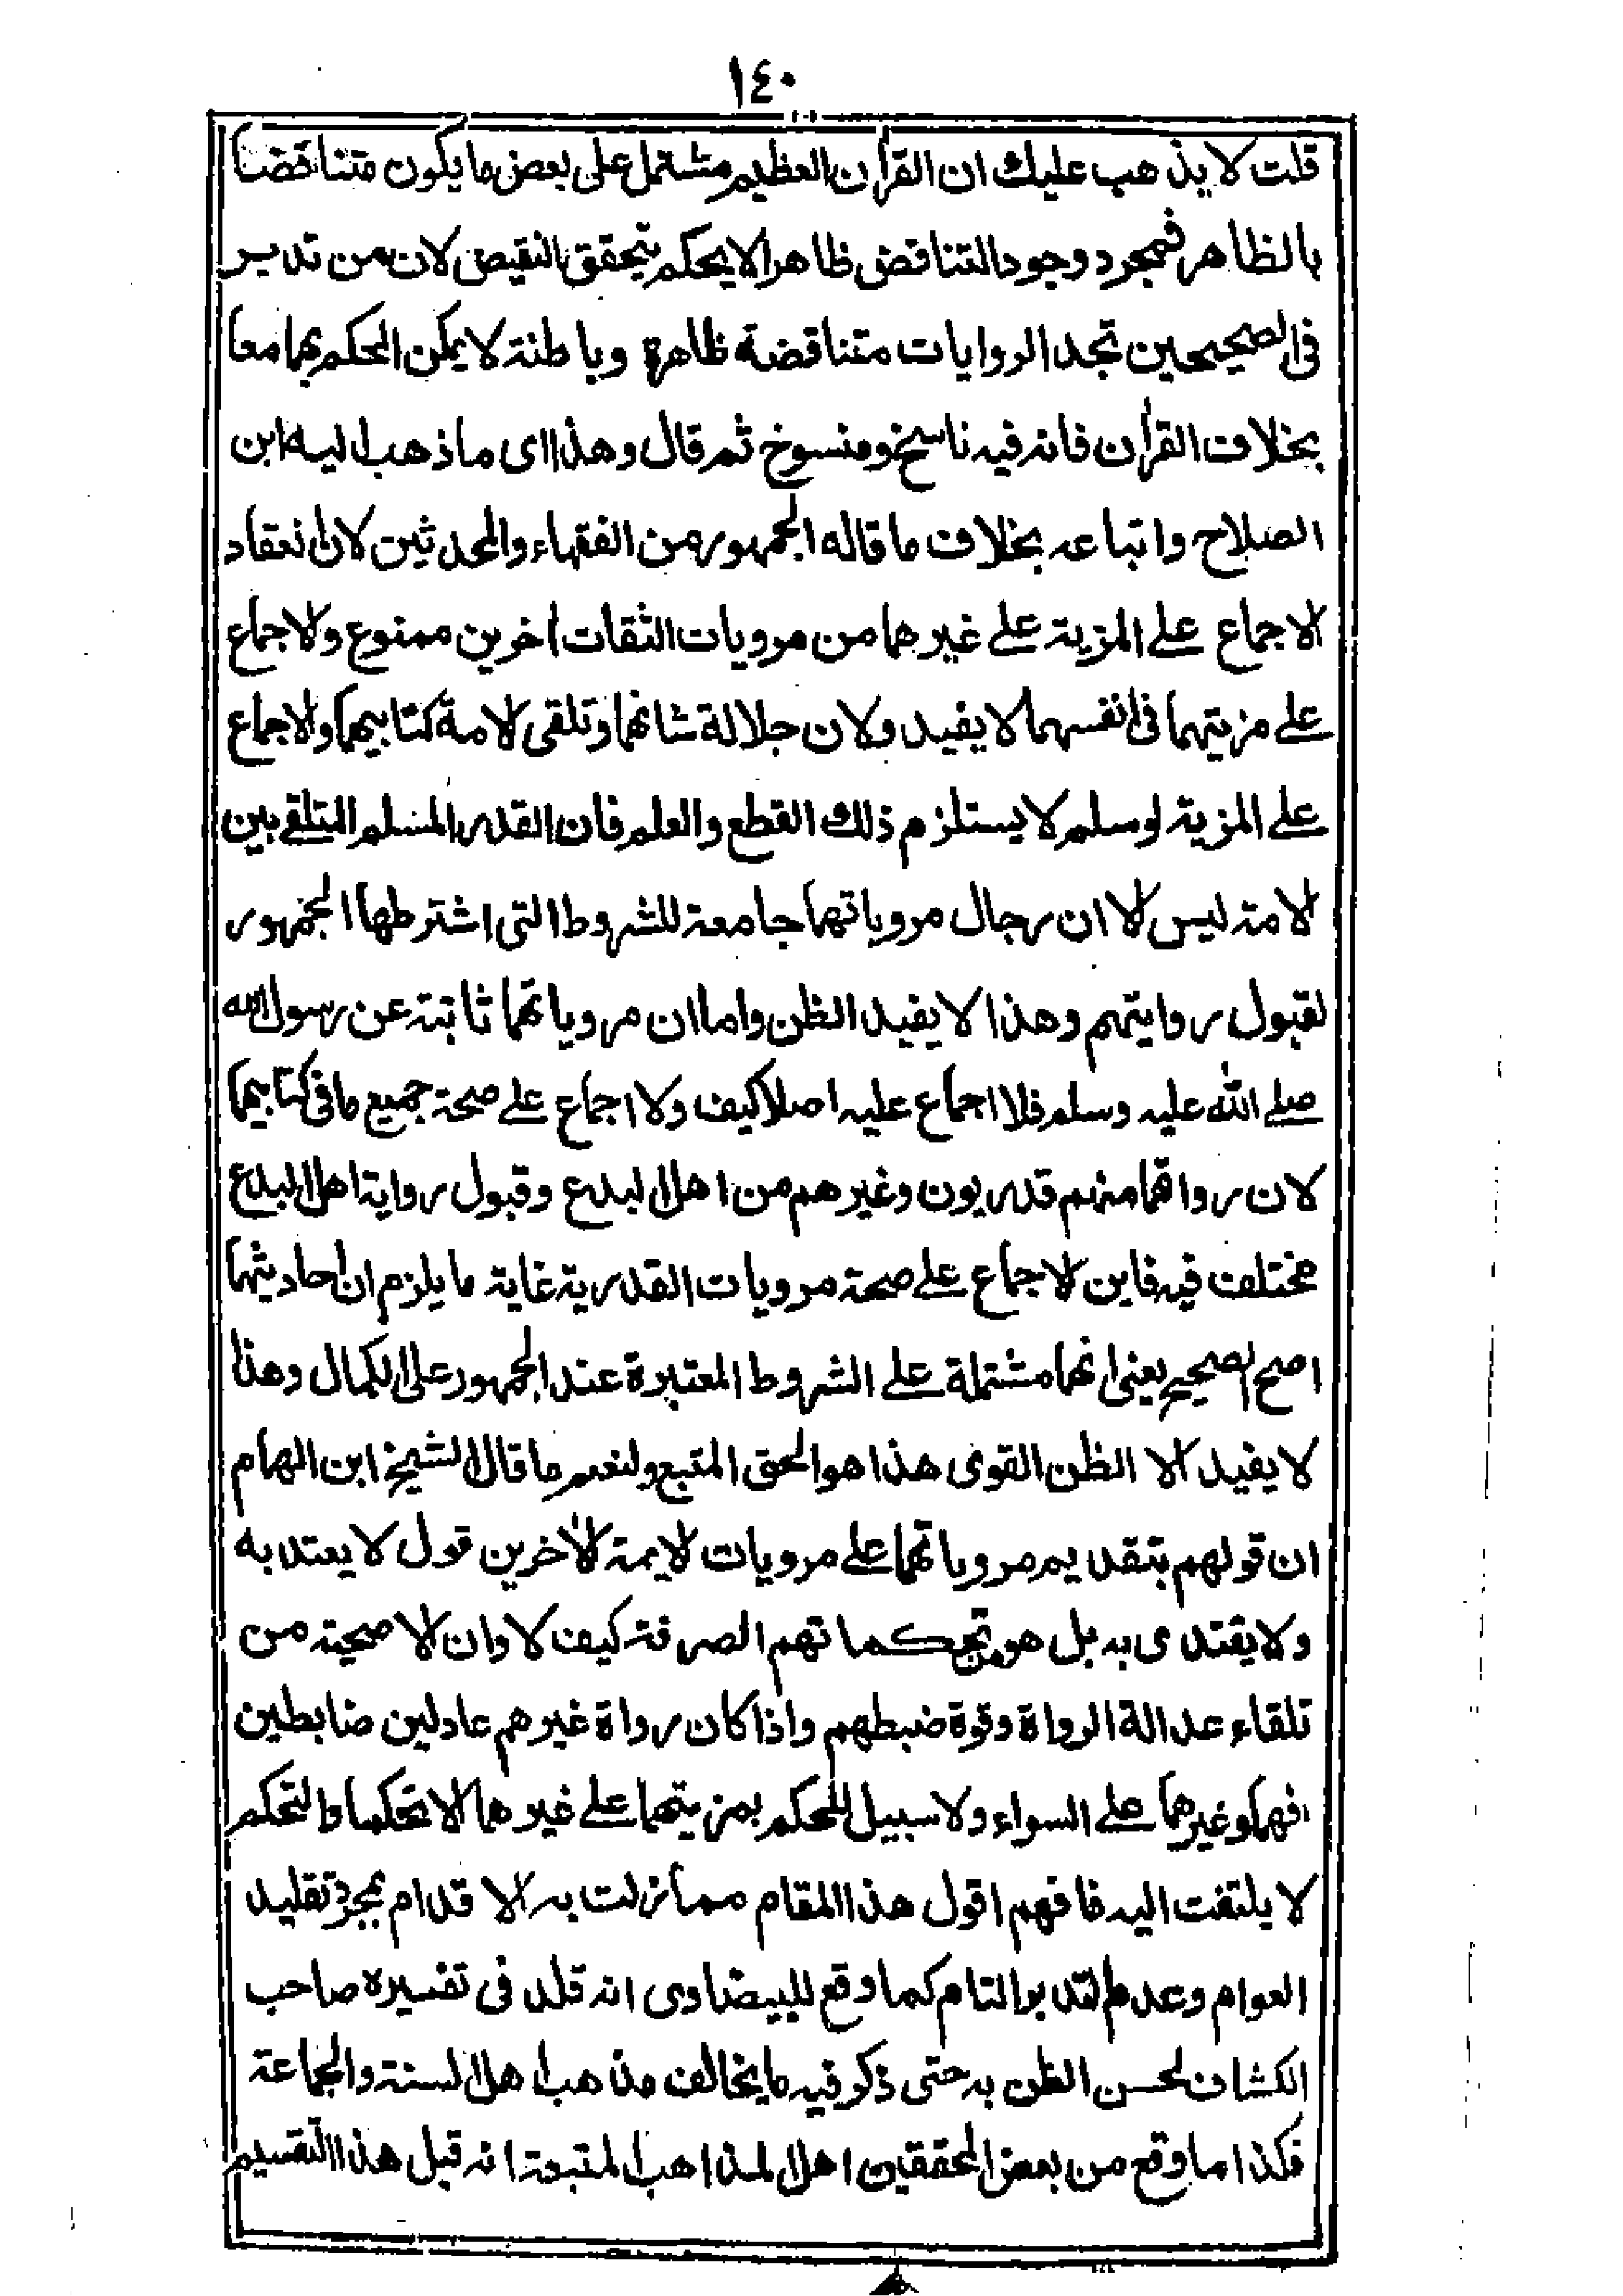 ١٤٠
قلت لا يذهب عليك ان القرأن العظيم مشتمل على بعض ما يكون متناقضا
بالظاهر فمجرد وجود التناقض ظاهرا لا يحكم بتحقق النقيض لان من تدبر
فى الصحيحين تجد الروايات متناقضة ظاهرة وباطنة لا يمكن الحكم بهما معا
بخلاف القرأن فانه فيه ناسخ ومنسوخ ثم قال وهذا اى ما ذهب اليه ابن
الصلاح واتباعه بخلاف ما قاله الجمهور من الفقهاء والمحدثين لان انعقاد
الاجماع على المزية على غيرهما من مرويات الثقات أخرين ممنوع والاجماع
على مزيتهما فى انفسهما لا يفيد ولان جلالة شانهما وتلقى الامة كتابيهما والاجماع
على المزية لو سلم لا يستلزم ذلك القطع والعلم فان القدر المسلم المتلقى بين
الامة ليس الا ان رجال مروياتهما جامعة للشروط التى اشترطها الجمهور
لقبول روايتهم وهذا لا يفيد الظن واما ان مروياتهما ثابتة عن رسول الله
صلى الله عليه وسلم فلا اجماع عليه اصلا كيف ولا اجماع على صحة جميع ما فى كتابيهما
لان رواتهما منهم قدريون وغيرهم من اهل البدع وقبول رواية اهل البدع
مختلف فيه فاين الاجماع على صحة مرويات القدرية غاية ما يلزم ان احاديثهما
اصح الصحيح يعنى انهما مشتملة على الشروط المعتبرة عند الجمهور على الكمال وهذا
لا يفيد الا الظن القوى هذا هو الحق المتبع ولنعم ما قال الشيخ ابن الهمام
ان قولهم بتقديم مروياتهما على مرويات الايمة الأخرين قول لا يعتد به
ولا يقتدى به بل هو من تحكماتهم الصرفة كيف لا وان الاصحية من
تلقاء عدالة الرواة وقوة ضبطهم واذا كان رواة غيرهم عادلين ضابطين
فهما وغيرهما على السواء ولا سبيل للحكم بمزيتهما على غيرهما الا تحكما والتحكم
لا يلتفت اليه فافهم اقول هذا المقام مما زلت به الاقدام بمجرد تقليد
العوام وعدم التدبر التام كما وقع للبيضاوى انه قلد فى تفسيره صاحب
الكشاف لحسن الظن به حتى ذكر فيه ما يخالف مذهب اهل السنة والجماعة
فكذا ما وقع من بعض المحققين اهل المذاهب المتبعة انه قبل هذا التقسيم